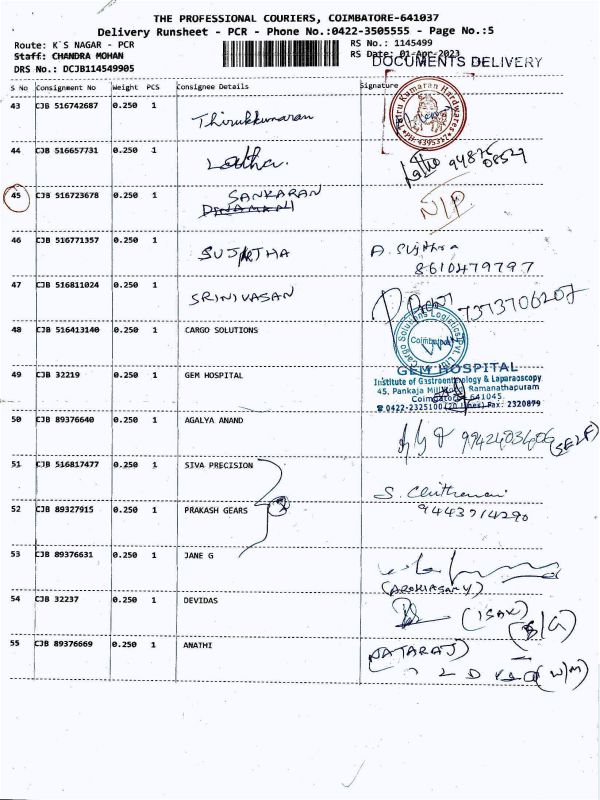 THE PROFESSIONAL COURIERS, COIMBATORE-641037
Delivery Runsheet - PCR - Phone No.:0422-3505555 - Page No.:5
Route: K S NAGAR - PCR
RS No.: 1145499
Staff: CHANDRA MOHAN
RS Date: 01-Apr-2023
DOCUMENTS DELIVERY
DRS No.: DCJB114549905
S No Consignment No Weight PCS Consignee Details Signature
43 CJB 516742687 0.250 1 Thirukkumaran
Thiru Kumaran Hardwares
44 CJB 516657731 0.250 1 Latha. Latha 94875 08527
45 CJB 516723678 0.250 1 SANKARAN
NIP
46 CJB 516771357 0.250 1 SUJATHA A. Sujithra
8610479797
47 CJB 516811024 0.250 1 SRINIVASAN 7373706207
48 CJB 516413140 0.250 1 CARGO SOLUTIONS
Cargo Solutions Logistics Pvt. Ltd
Coimbatore
49 CJB 32219 0.250 1 GEM HOSPITAL
GEM HOSPITAL
Institute of Gastroenterology & Laparaoscopy
45, Pankaja Mill Ramanathapuram
Coimbatore 641045.
0422-2325100 (20 Lines) Fax: 2320879
50 CJB 89376640 0.250 1 AGALYA ANAND 9942403406 (SELF)
51 CJB 516817477 0.250 1 SIVA PRECISION
S. Chithramani
52 CJB 89327915 0.250 1 PRAKASH GEARS 9443714290
53 CJB 89376631 0.250 1 JANE G
(AROKIASAMY)
54 CJB 32237 0.250 1 DEVIDAS (ISAK)
(S/G)
55 CJB 89376669 0.250 1 ANATHI (NATARAJ)
(W/M)